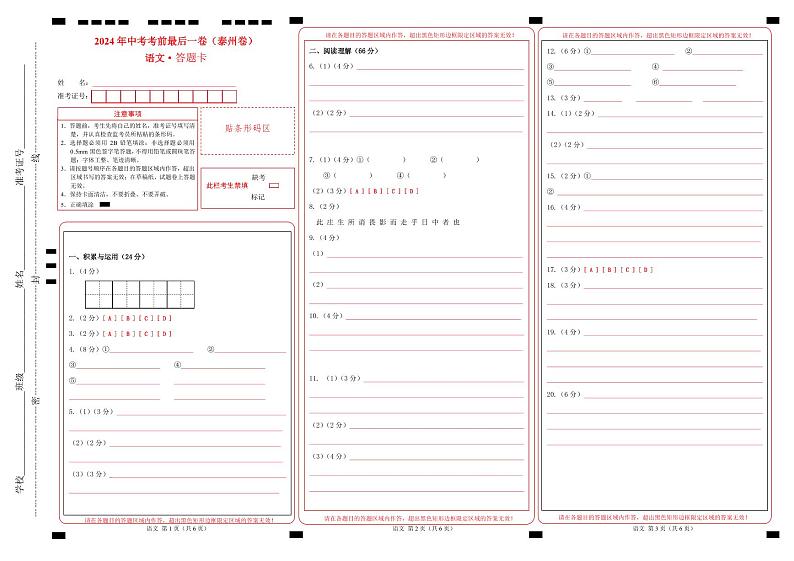 2024 年中考考前最后一卷（泰州卷）
语文·答题卡
姓 名：
准考证号：
注意事项
1．答题前，考生先将自己的姓名，准考证号填写清
楚，并认真检查监考员所粘贴的条形码。
2．选择题必须用 2B 铅笔填涂；非选择题必须用
0.5mm 黑色签字笔答题，不得用铅笔或圆珠笔答
题；字体工整、笔迹清晰。
3．请按题号顺序在各题目的答题区域内作答，超出
区域书写的答案无效；在草稿纸、试题卷上答题
无效。
4．保持卡面清洁，不要折叠、不要弄破。
5．正确填涂
贴条形码区
此栏考生禁填
缺考
标记
学校
班级
姓名
准考证号
密
封
线
一、积累与运用(24 分)
1.（4 分）
2.（2 分）[A][B][C][D]
3.（2 分）[A][B][C][D]
4.（8 分）① ②
③ ④
⑤
5.（1）（3 分）
（2）（2 分）
（3）（3 分）
请在各题目的答题区域内作答，超出黑色矩形边框限定区域的答案无效！
语文 第 1 页（共 6 页）
请在各题目的答题区域内作答，超出黑色矩形边框限定区域的答案无效！
二、阅读理解(66 分)
6.（1）（4 分）
（2）（2 分）
7.（1）（4 分）①（ ） ②（ ）
③（ ） ④（ ）
（2）（3 分）[A][B][C][D]
8.（2 分）
此 庄 生 所 谓 畏 影 而 走 乎 日 中 者 也
9.（4 分）
（1）
（2）
10.（4 分）
11. （1）（3 分）
（2）（2 分）
（3）（4 分）
请在各题目的答题区域内作答，超出黑色矩形边框限定区域的答案无效！
语文 第 2 页（共 6 页）
请在各题目的答题区域内作答，超出黑色矩形边框限定区域的答案无效！
12.（6 分）① ②
③ ④
⑤ ⑥
13.（3 分）
14.（1）（2 分）
（2）（2 分）
15.（2 分）①
②
16.（4 分）
17.（3 分）[A][B][C][D]
18.（3 分）
19.（4 分）
20.（6 分）
请在各题目的答题区域内作答，超出黑色矩形边框限定区域的答案无效！
语文 第 3 页（共 6 页）